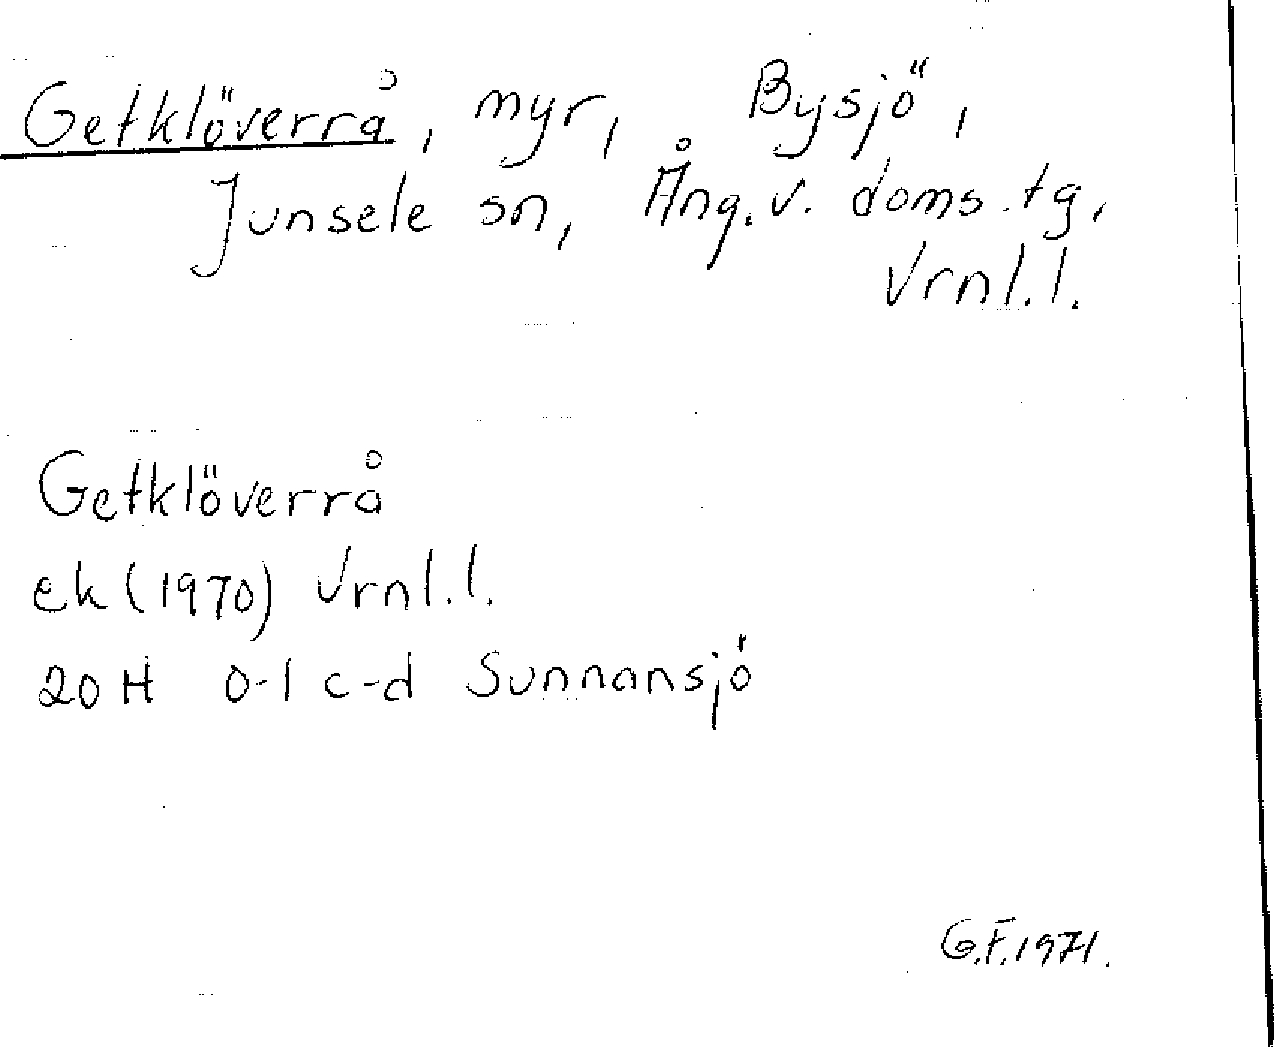 Getklöverrå, myr, Bysjö,
Junsele sn, Ång. v. doms.tg,
Vrnl.l.
Getklöverrå
ek (1970) Vrnl.l.
20 H 0-1 c-d Sunnansjö
G.F. 1971.